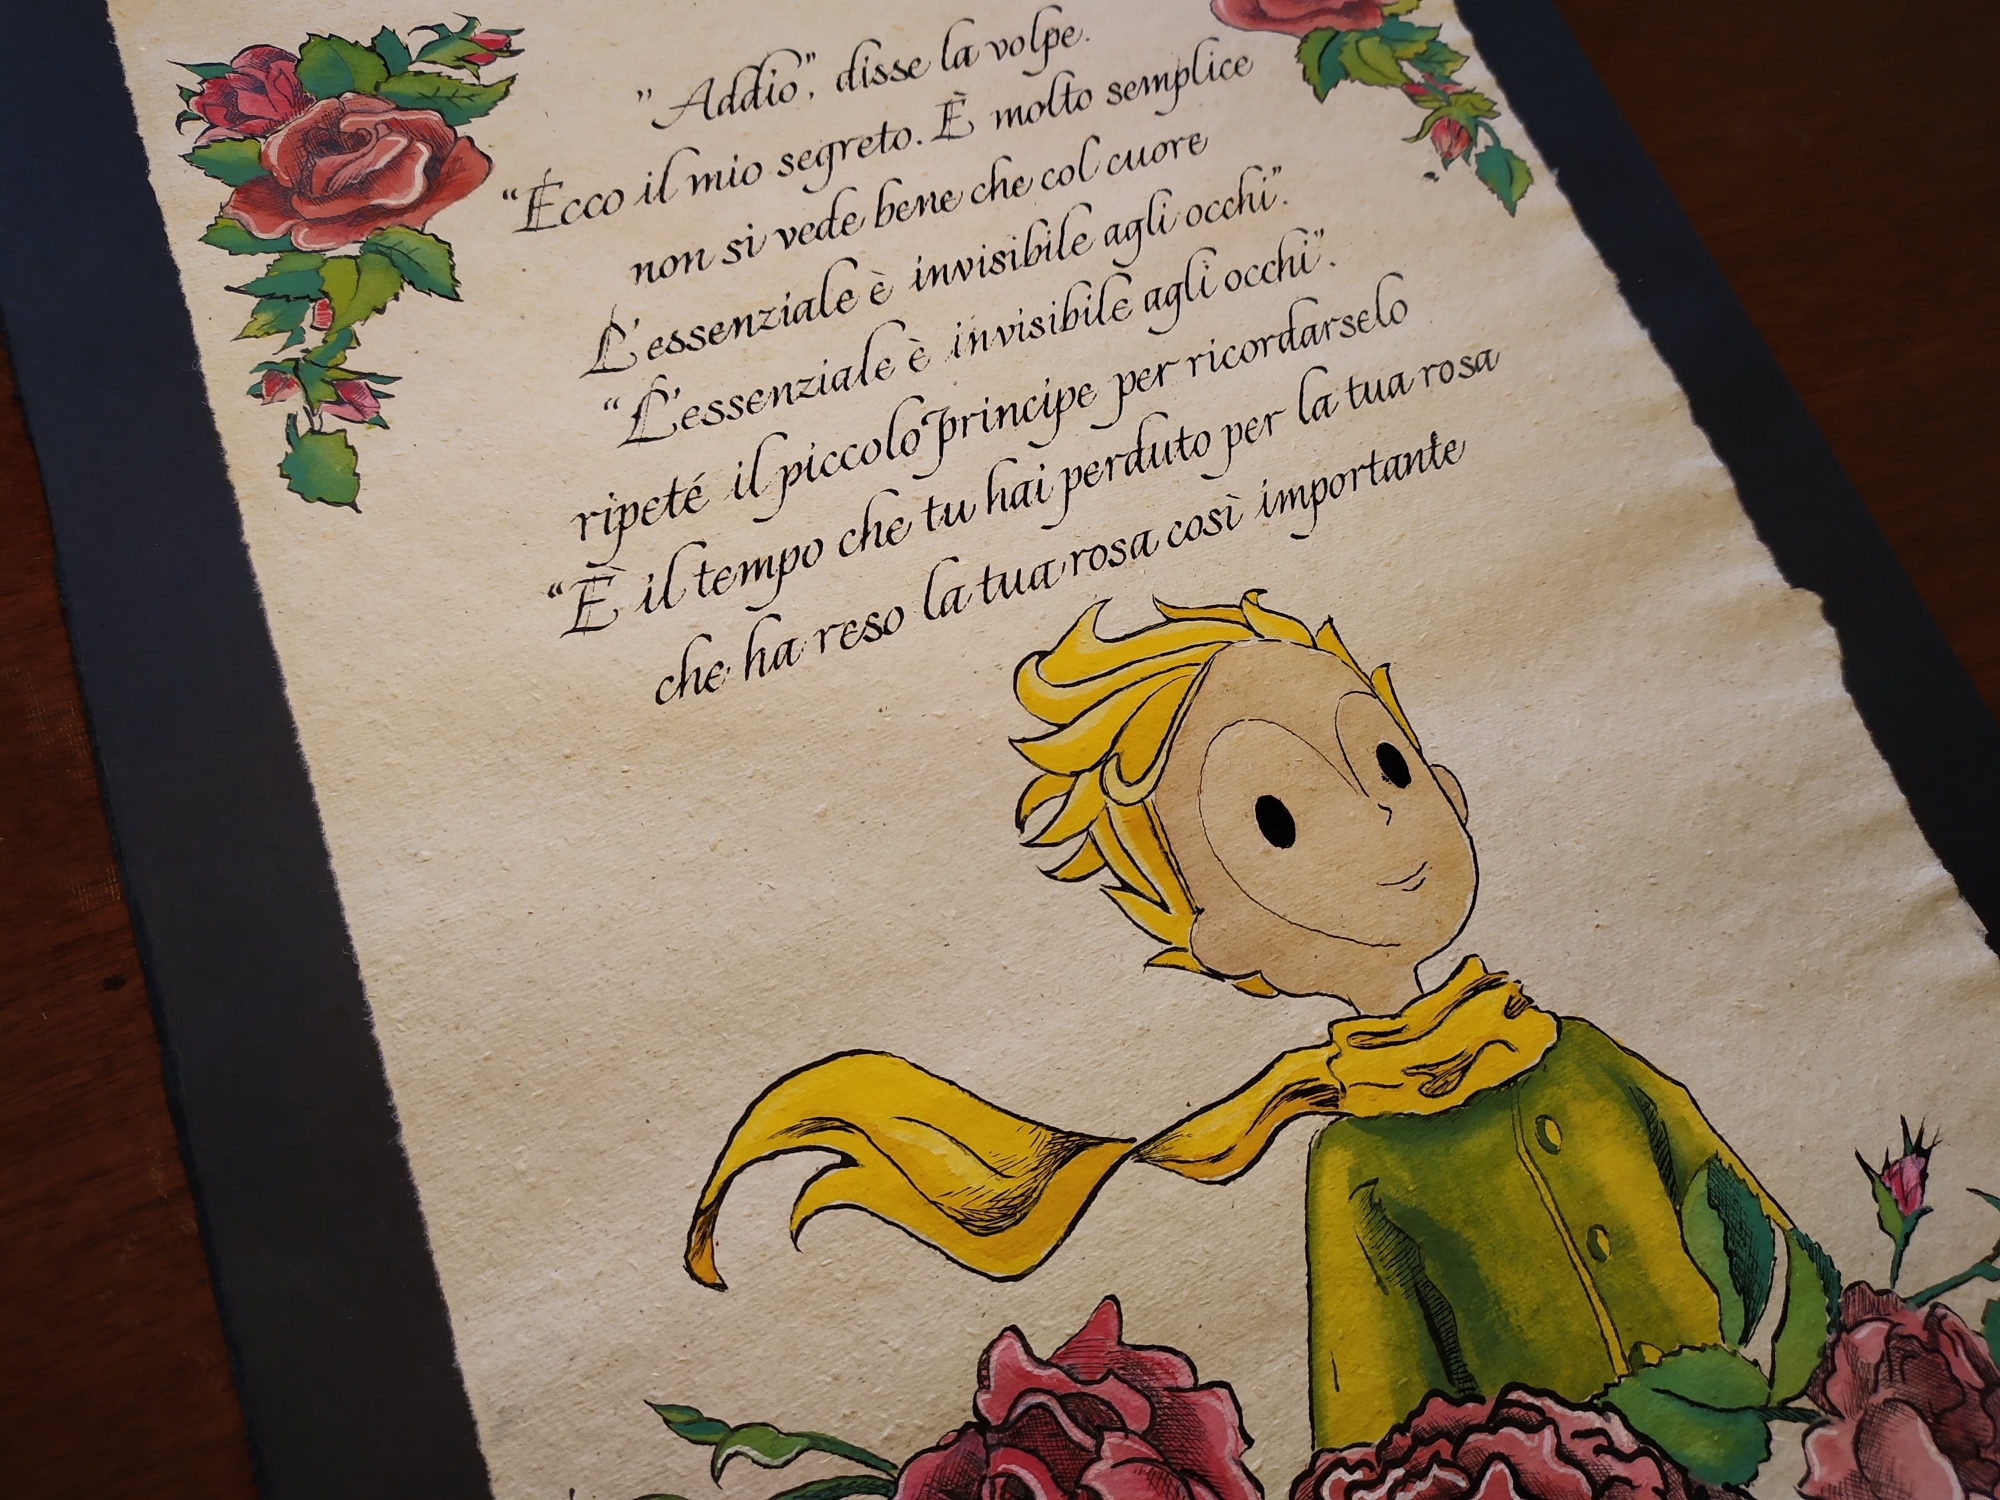 " Addio", disse la volpe.
"Ecco il mio segreto. È molto semplice
non si vede bene che col cuore
L'essenziale è invisibile agli occhi".
"L'essenziale è invisibile agli occhi".
ripeté il piccolo Principe per ricordarselo
"È il tempo che tu hai perduto per la tua rosa
che ha reso la tua rosa così importante